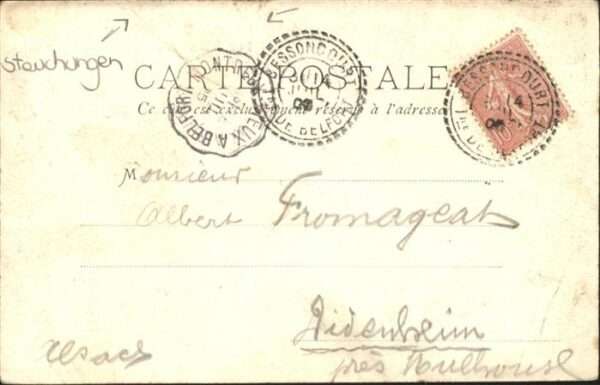 Stauchungen
CARTE POSTALE
Ce côté est exclusivement réservé à l'adresse
MONTREUX A BELFORT
BESSONCOURT
Tre DE BELFORT
14
BESSONCOURT
14
Monsieur
Albert Fromageat
Didenheim
près Mulhouse
Alsace